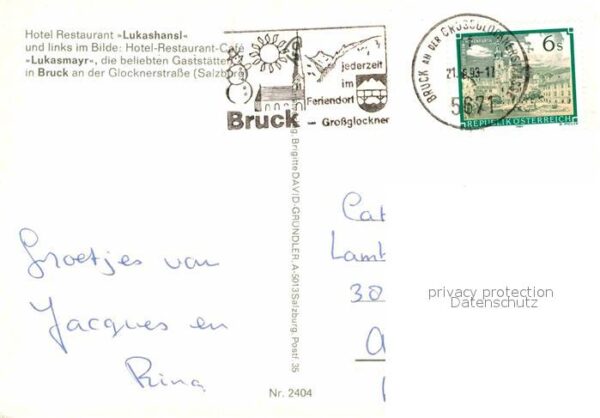 Hotel Restaurant »Lukashansl«
und links im Bilde: Hotel-Restaurant-Café
»Lukasmayr«, die beliebten Gaststätten
in Bruck an der Glocknerstraße (Salzburg)
jederzeit
im
Feriendorf
Bruck – Großglockner
BRUCK AN DER
5671
6s
REPUBLIK ÖSTERREICH
Brigitte DAVID-GRÜNDLER A-5013 Salzburg, Postf. 35
Groetjes van
Jacques en
Rina
Cat
Lamb
30
privacy protection
Datenschutz
Nr. 2404